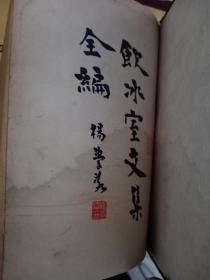 飲冰室文集
全編